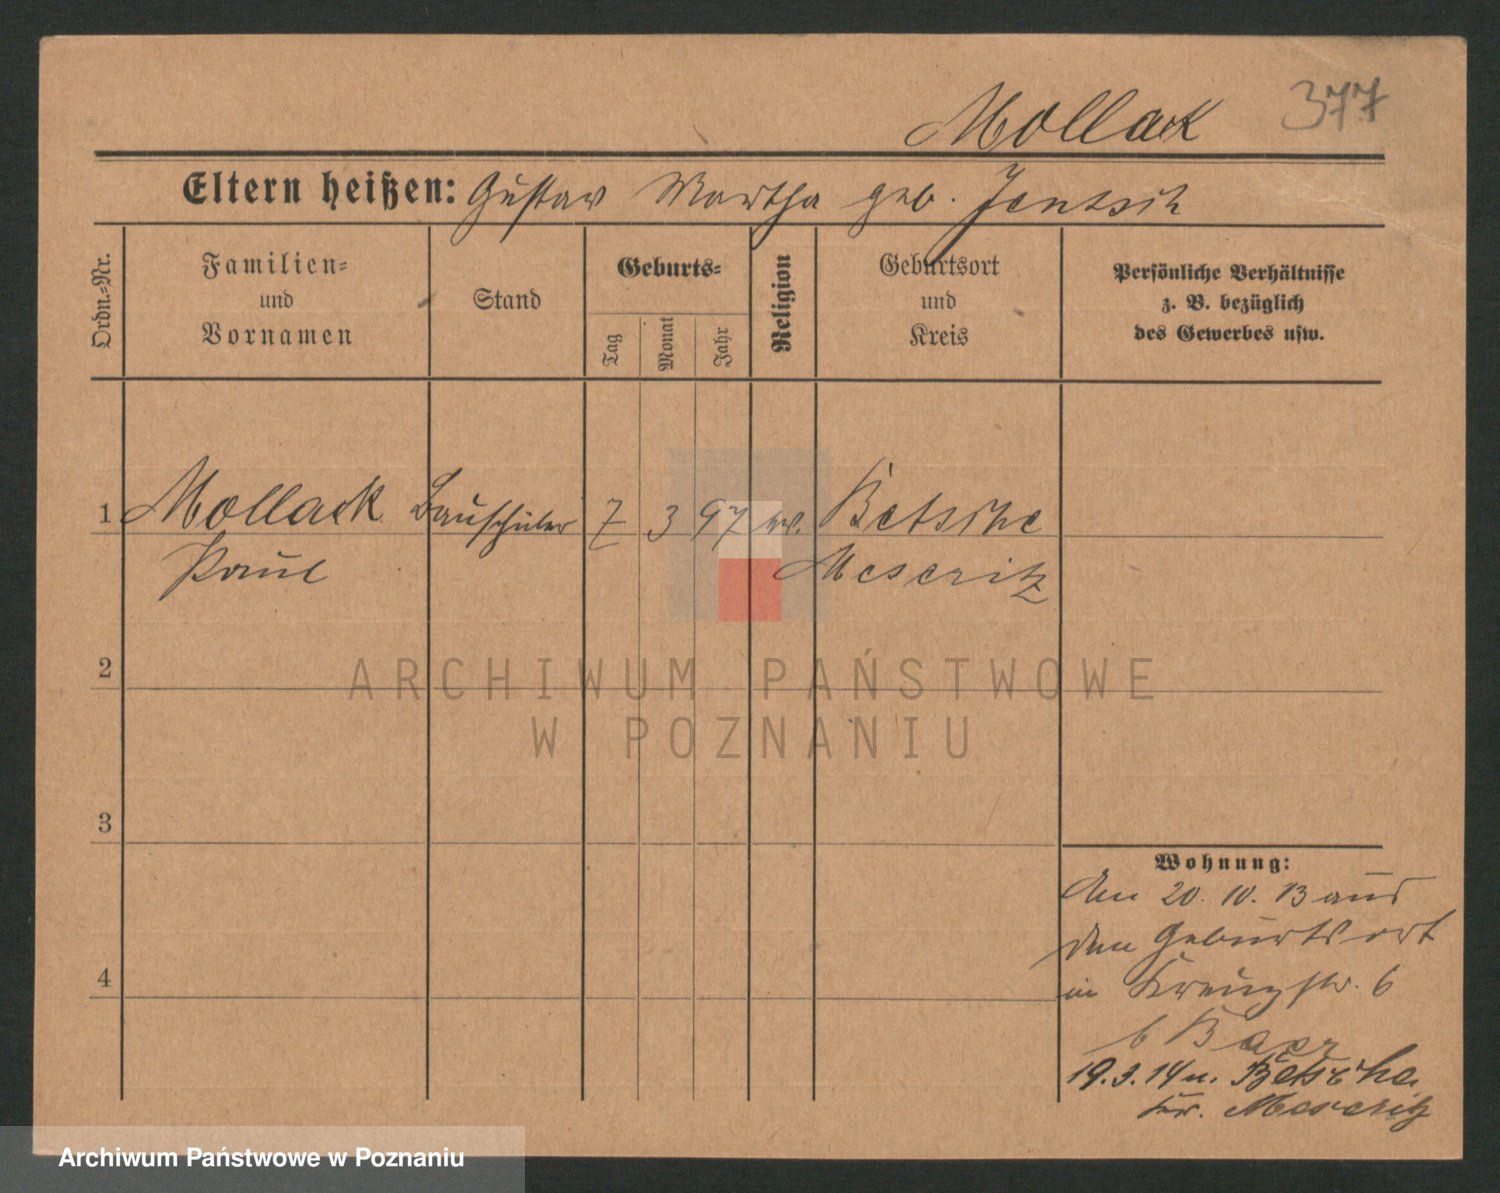 377
Mollack
Eltern heißen: Gustav Martha geb. Jentsch
Ordn.-Nr.
Familien-
und
Vornamen
Stand
Geburts-
Tag
Monat
Jahr
Religion
Geburtsort
und
Kreis
Persönliche Verhältnisse
z. B. bezüglich
des Gewerbes usw.
1 Mollack Bauschüler 7 3 97 ev. Betsche
Paul Meseritz
2
3
4
Wohnung:
Am 20. 10. 13 aus
dem Geburtsort
in Kreuzstr. 6
b
19.3.14 n. Betsche
Kr. Meseritz
ARCHIWUM PAŃSTWOWE
W POZNANIU
Archiwum Państwowe w Poznaniu